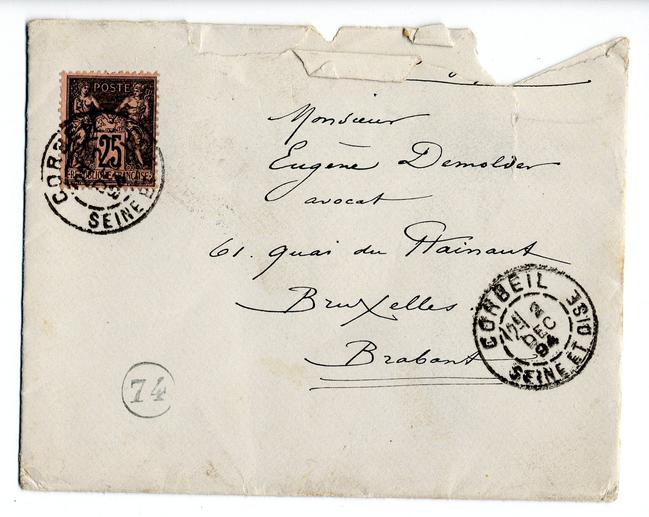 POSTE
25
REPUBLIQUE FRANCAISE
CORBEIL
SEINE ET
Monsieur
Eugène Demolder
avocat
61. quai du Hainaut
Bruxelles
Brabant
CORBEIL
DEC
94
SEINE ET OISE
74